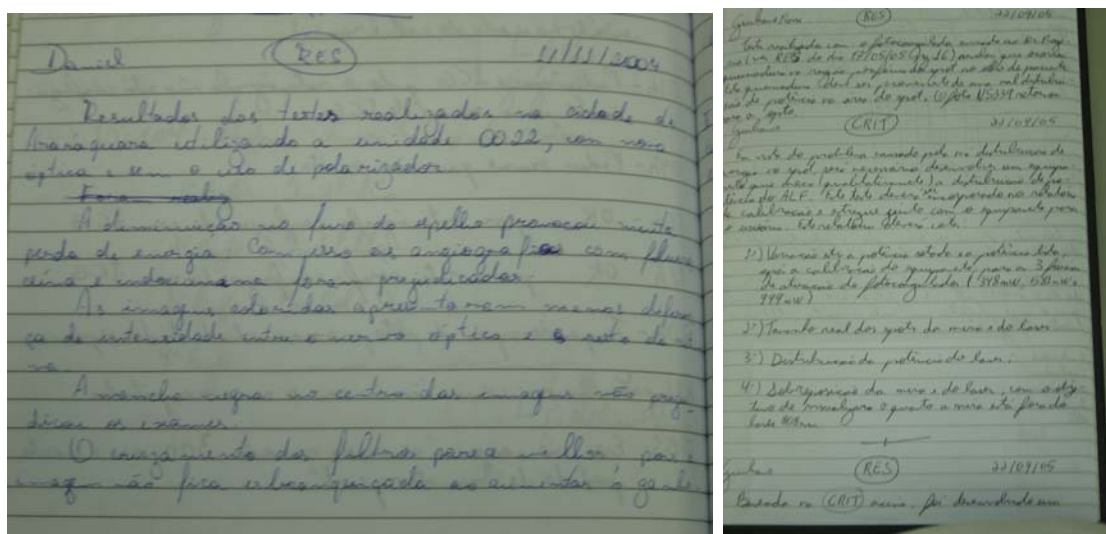 Daniel RES 11/11/2004
Resultados dos testes realizados na cidade de
Araraquara utilizando a unidade 0022, com nova
óptica e sem o uso de polarizador.
A diminuição no furo do espelho provocou muita
perda de energia. Com isso as angiografias com fluores
ceína e indocianina foram prejudicadas.
As imagens coloridas apresentaram menos diferen
ça de intensidade entre o nervo óptico e o resto da reti
na.
A mancha negra no centro das imagens não preju
dicou os exames.
O cruzamento dos filtros parece melhor, pois a
imagem não fica esbranquiçada ao aumentar o ganho
RES 22/09/05
Teste realizado com o fotocoagulador enviado ao Dr.
(ver RES do dia 17/05/05 (pg 26)
queimadura na região periférica do spot no olho do paciente
queimadura deve ser proveniente de uma má distribui
ção de potência na área do spot. O foto NS339 retornou
CRIT 22/09/05
Em vista do problema causado pela má distribuição de
energia no spot, será necessário desenvolver um equipa
mento que meça (qualitativamente) a distribuição de po
tência do ALF. Este teste deverá ser incorporado no relatório
de calibração e entregue junto com o equipamento para
o usuário. Este relatório deverá
1º) potência setada e potência lida,
após a calibração do equipamento, para as 3 faixas
de atuação do fotocoagulador (348mW, 681mW e
999mW)
2º) Tamanho real dos spots da mira e do laser
3º) Distribuição da potência do laser;
4º) Sobreposição da mira e do laser, com o obje
tivo de visualizar o quanto a mira está fora do
laser
RES 22/09/05
Baseado no CRIT acima, foi desenvolvido um